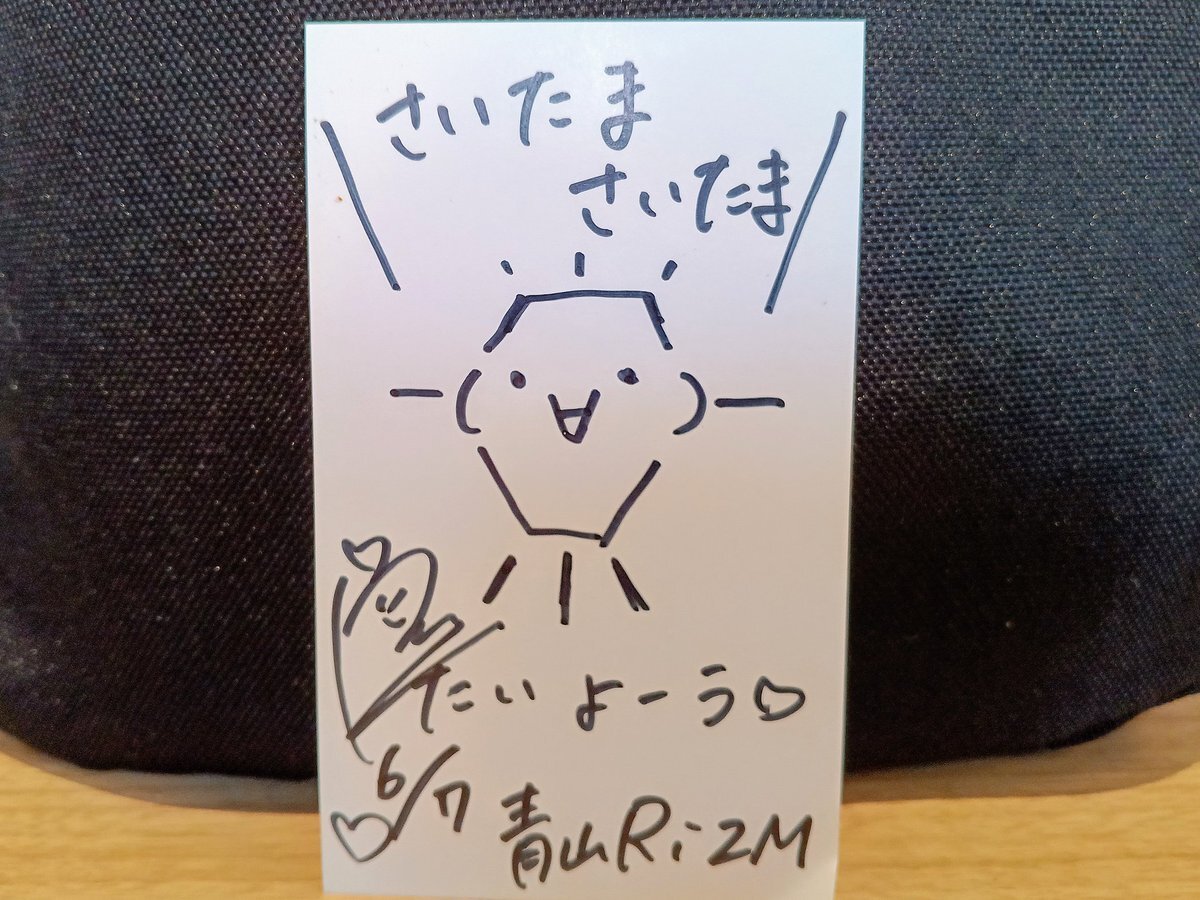 さいたま
さいたま
たいよーう♡
6/7
青山RiZM